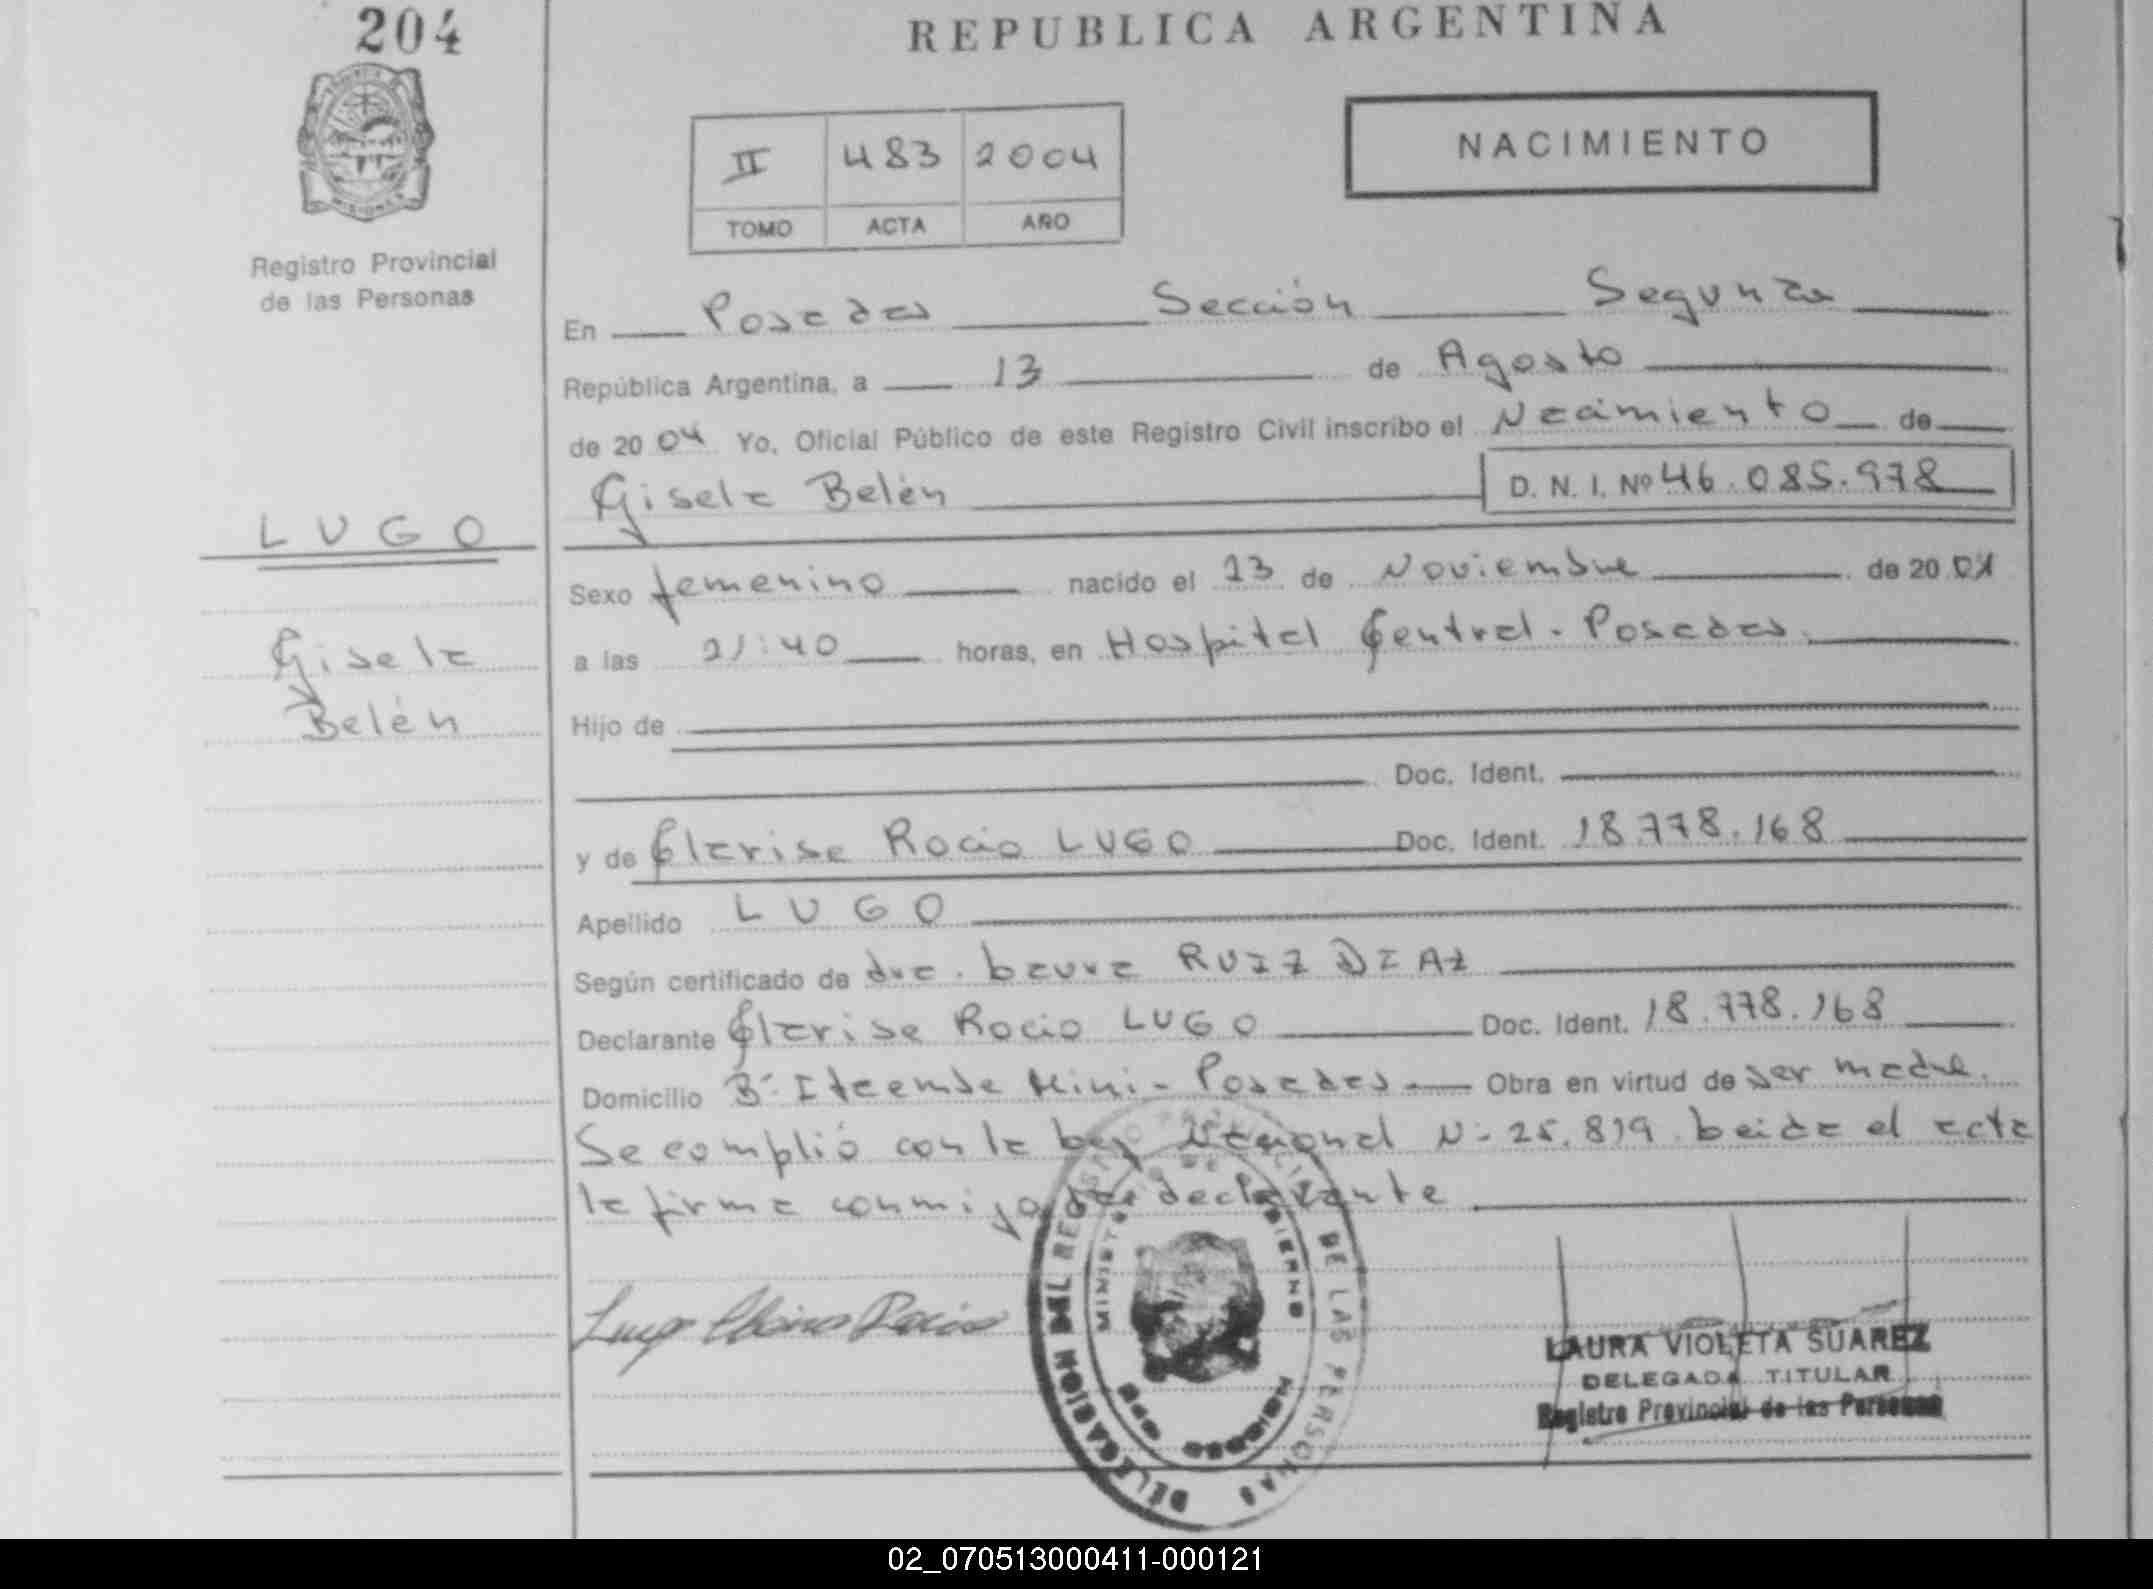 204
REPUBLICA ARGENTINA
NACIMIENTO
II 483 2004
TOMO ACTA AÑO
Registro Provincial
de las Personas
En Posadas Sección Segunda
República Argentina, a 13 de Agosto
de 2004 Yo, Oficial Público de este Registro Civil inscribo el Nacimiento de
Gisela Belén D. N. I. Nº 46.085.978
LUGO
Sexo femenino nacido el 23 de Noviembre de 20
Gisela
Belén
a las 21:40 horas, en Hospital Central - Posadas.
Hijo de
Doc. Ident.
y de Clarisa Rocio LUGO Doc. Ident. 18.778.168
Apellido LUGO
Según certificado de dra. Laura RUIZ DIAZ
Declarante Clarisa Rocio LUGO Doc. Ident. 18.778.168
Domicilio Bº Itaembe Mini - Posadas Obra en virtud de ser madre.
Se complió con la Ley Nacional Nº 25.819. Leida el acta
la firma conmigo declarante
Lugo Rocio
DELEGACION DEL REGISTRO PROVINCIAL DE LAS PERSONAS
MINISTERIO DE GOBIERNO
MISIONES
LAURA VIOLETA SUAREZ
DELEGADA TITULAR
Registro Provincial de las Personas
02_070513000411-000121